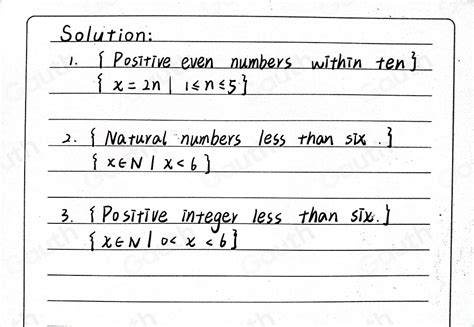 Solution:
1. { Positive even numbers within ten}
{ x = 2n | 1≤n≤5}
2. { Natural numbers less than six .}
{ x∈N | x < 6 }
3. { Positive integer less than six.}
{ x∈N | 0< x < 6}